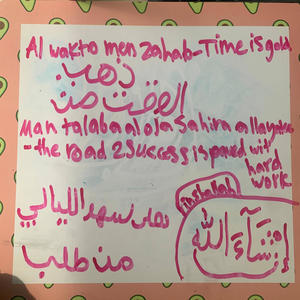 Al wakto men zahab-Time is gold
ذهب.
الوقت من
Man talaba al ola sahira allayalee
-the road 2 Success is paved wit
hard
work
inshallah
إنشآء الله
سهر الليالي
من طلب